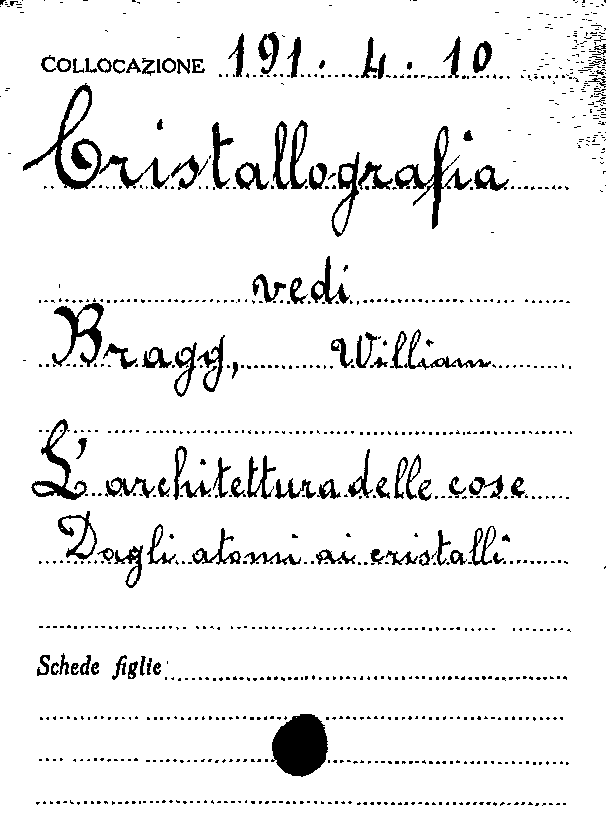 COLLOCAZIONE 191. 4. 10
Cristallografia
vedi
Bragg, William
L'architettura delle cose
Dagli atomi ai cristalli
Schede figlie